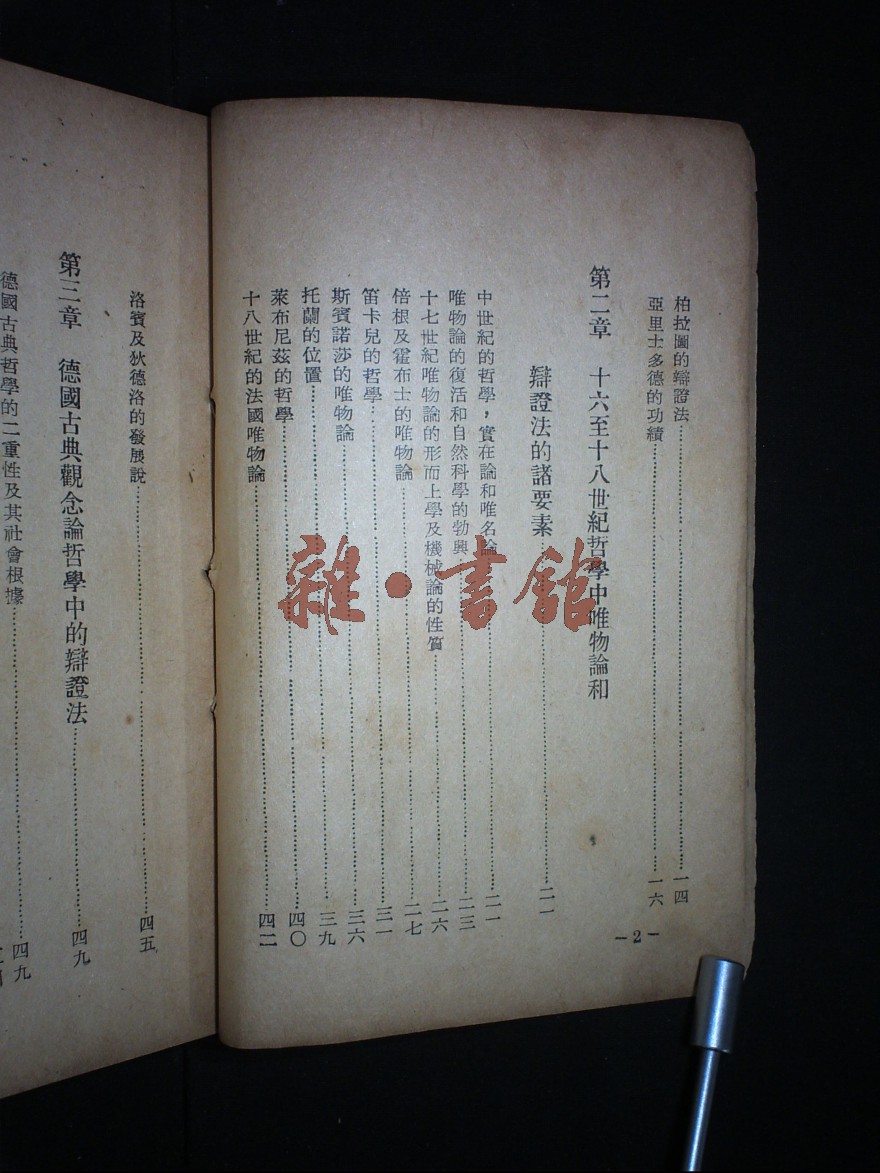 柏拉圖的辯證法……一四
亞里士多德的功績……一六
第二章 十六至十八世紀哲學中唯物論和
辯證法的諸要素……二一
中世紀的哲學，實在論和唯名論……二一
唯物論的復活和自然科學的勃興……二三
十七世紀唯物論的形而上學及機械論的性質……二六
倍根及霍布士的唯物論……二七
笛卡兒的哲學……三一
斯賓諾莎的唯物論……三六
托蘭的位置……三九
萊布尼茲的哲學……四〇
十八世紀的法國唯物論……四二
－2－
洛賓及狄德洛的發展說……四五
第三章 德國古典觀念論哲學中的辯證法……四九
德國古典哲學的二重性及其社會根據……四九
雜·書館